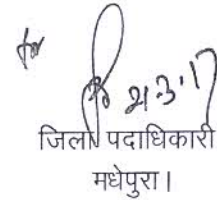 for
21.3.17
जिला पदाधिकारी
मधेपुरा।